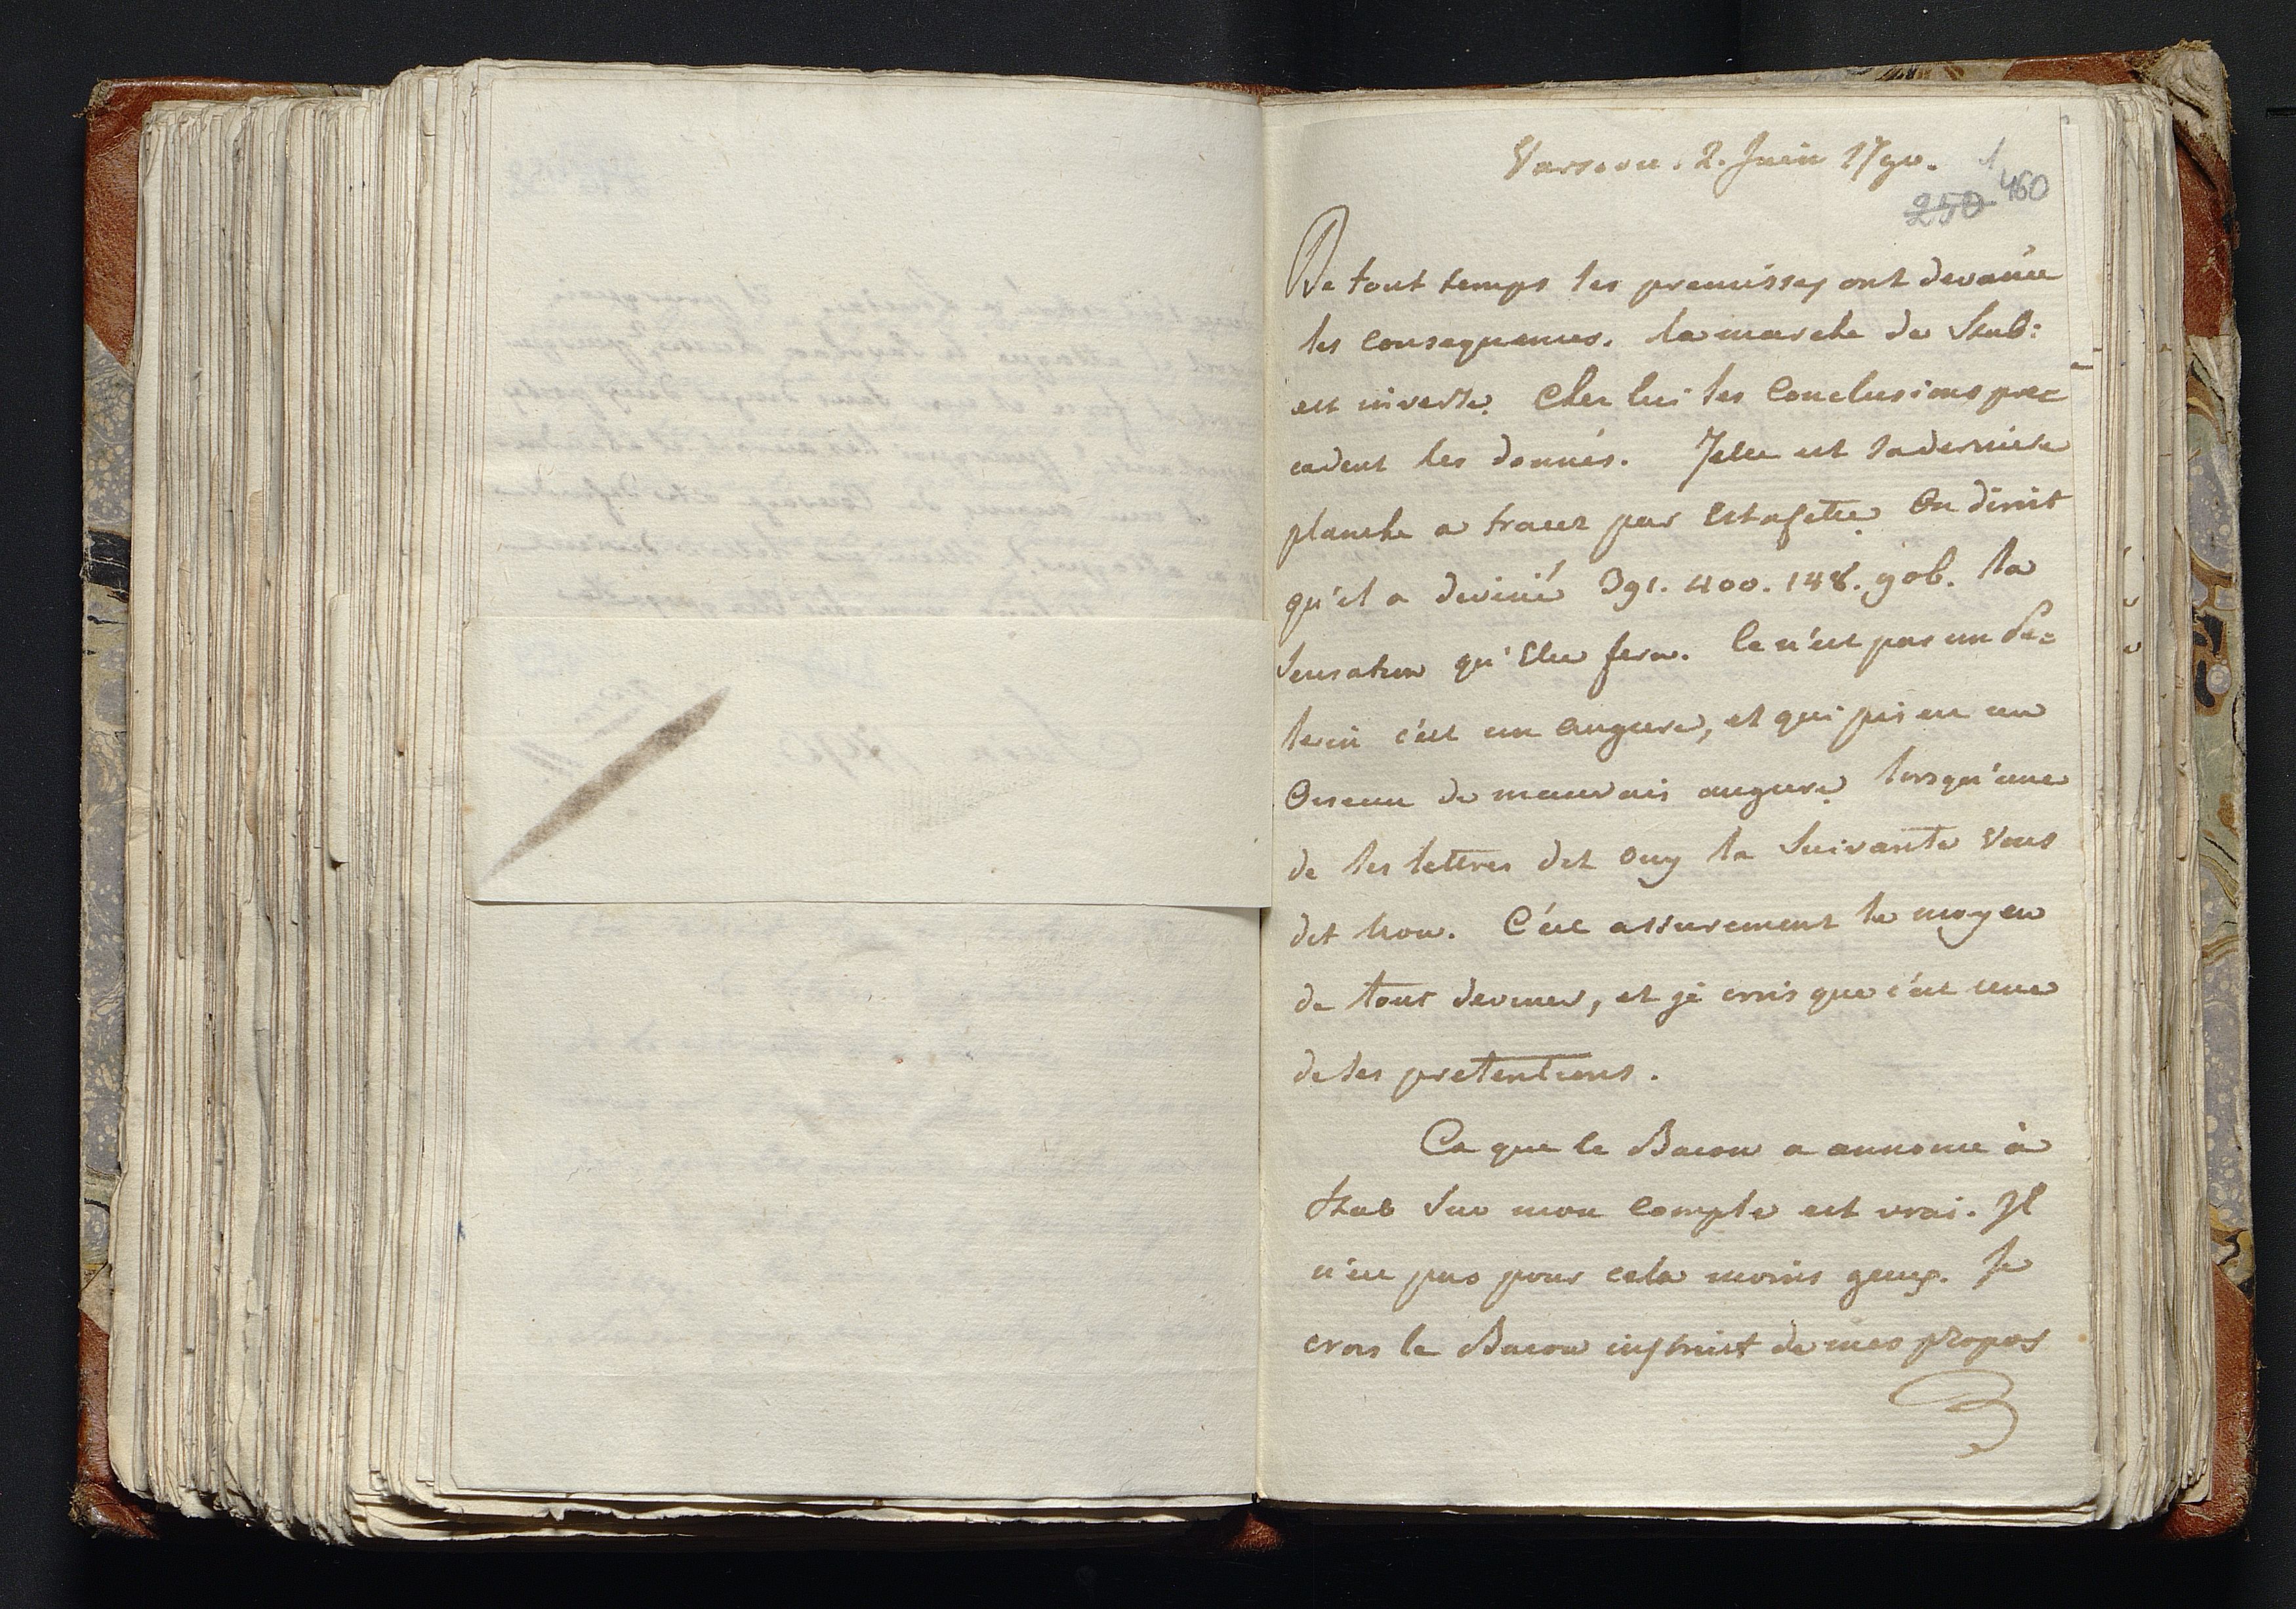 Varsovie. 2. Juin 1790.
1
250 460
De tout temps les premisses ont devancé
les consequences. la marche de Stab:
est inverse. Chez lui les Conclusions pre=
cedent les donnés. Telle est sa derniere
planche a tracer par Estafette. On diroit
qu'il a deviné 391. 400. 148. gob. la
Sensation qu'Elle fera. Ce n'est pas un De=
vin c'est un augure, et qui pis en un
Oiseau de mauvais augure. lorsqu'une
de ses lettres dit ouy la Suivante vous
dit non. C'est assurement le moyen
de tout deviner, et je crois que c'est une
de ses pretentions.
Ce que le Bacon a annoncé à
Stab Sur mon compte est vrai. Il
n'en pas pour cela moins gueux. Je
crois le Bacon instruit de mes propos